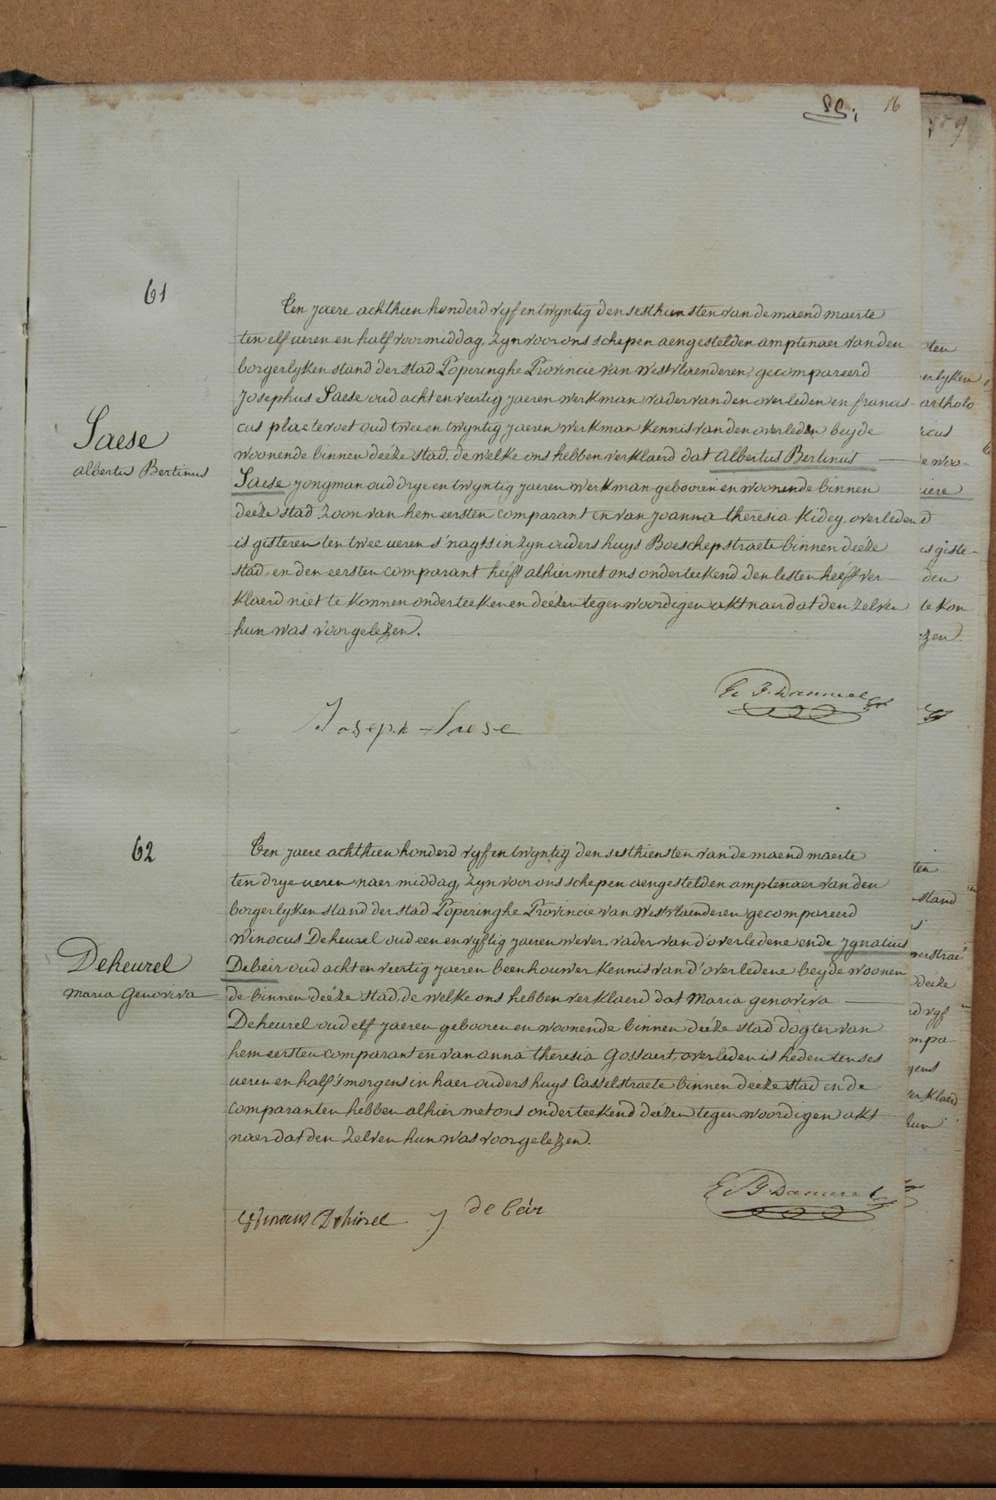 16
61
Ten jaere achthien honderd vyf en twyntig den sesthiensten van de maend maerte
ten elf ueren en half voormiddag, zyn voor ons schepen aengestelden amptenaer van den
borgerlyken stand der stad Poperinghe Provincie van Westvlaenderen, gecompareerd
Josephus Saese oud acht en veertig jaeren werkman vader van den overleden en francis-
cus plaetevoet oud twee en twyntig jaeren werkman kennis van den overleden beyde
woonende binnen deéze stad, de welke ons hebben verklaerd dat Albertus Bertinus
Saese jongman oud drye en twyntig jaeren werkman gebooren en woonende binnen
deéze stad zoon van hem eersten comparant en van joanna theresia Kidey overleden
is gisteren ten twee ueren s'nagts in zyn ouders huys Boeschepstraete binnen deéze
stad, en den eersten comparant heéft alhier met ons onderteekend den lesten heéft ver-
klaerd niet te konnen onderteekenen deézen tegenwoordigen akt naer dat den zelven
hun was voorgelezen.
Saese
albertus Bertinus
Joseph Saese
62
Ten jaere achthien honderd vyf en twyntig den sesthiensten van de maend maerte
ten drye ueren naermiddag, zyn voor ons schepen aengestelden amptenaer van den
borgerlyken stand der stad Poperinghe Provincie van Westvlaenderen gecompareerd
Winocus Deheurel oud een en vyftig jaeren wever vader van d'overledene en de jgnatius
Debeir oud acht en veertig jaeren beenhouwer kennis van d'overledene beyde woonen
de binnen deéze stad, de welke ons hebben verklaerd dat Maria genoviva
Deheurel oud elf jaeren gebooren en woonende binnen deéze stad dogter van
hem eersten comparant en van anna theresia Gossaert, overleden is heden ten ses
ueren en half s'morgens in haer ouders huys Casselstraete binnen deeze stad en de
comparanten hebben alhier met ons onderteekend deézen tegenwoordigen akt
naer dat den zelven hun was voorgelezen.
Deheurel
Maria Genoviva
J de beir